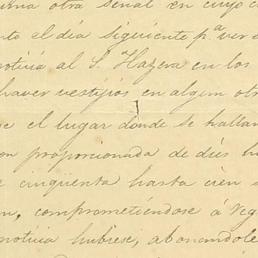 una otra señal en cuyo c
el día siguiente pª ver a
noticia al S. Hazera en los
haver vestijios en algun otr
se el lugar donde se hallan
on proporcionada de diés h
e cinqüenta hasta cien s
n, comprometiéndose á veg
noticia hubiese, abonandole